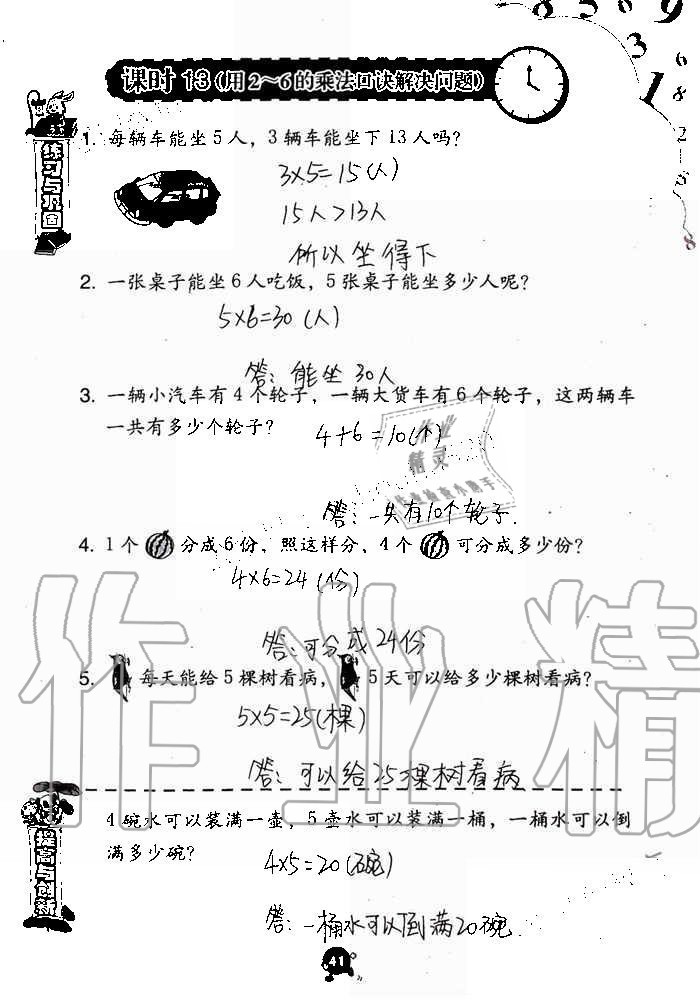 课时 13(用2~6的乘法口诀解决问题)
练习与巩固
1. 每辆车能坐5人，3辆车能坐下13人吗?
3×5=15(人)
15人>13人
所以坐得下
2. 一张桌子能坐6人吃饭，5张桌子能坐多少人呢?
5×6=30(人)
答：能坐30人
3. 一辆小汽车有4个轮子，一辆大货车有6个轮子，这两辆车
一共有多少个轮子?
4+6=10(个)
作业
精灵
答：一共有10个轮子.
4. 1个 分成6份，照这样分，4个 可分成多少份?
4×6=24(份)
答：可分成24份
5. 每天能给5棵树看病， 5天可以给多少棵树看病?
5×5=25(棵)
答：可以给25棵树看病
作业精
提高与创新
4碗水可以装满一壶，5壶水可以装满一桶，一桶水可以倒
满多少碗?
4×5=20(碗)
答：一桶水可以倒满20碗.
41